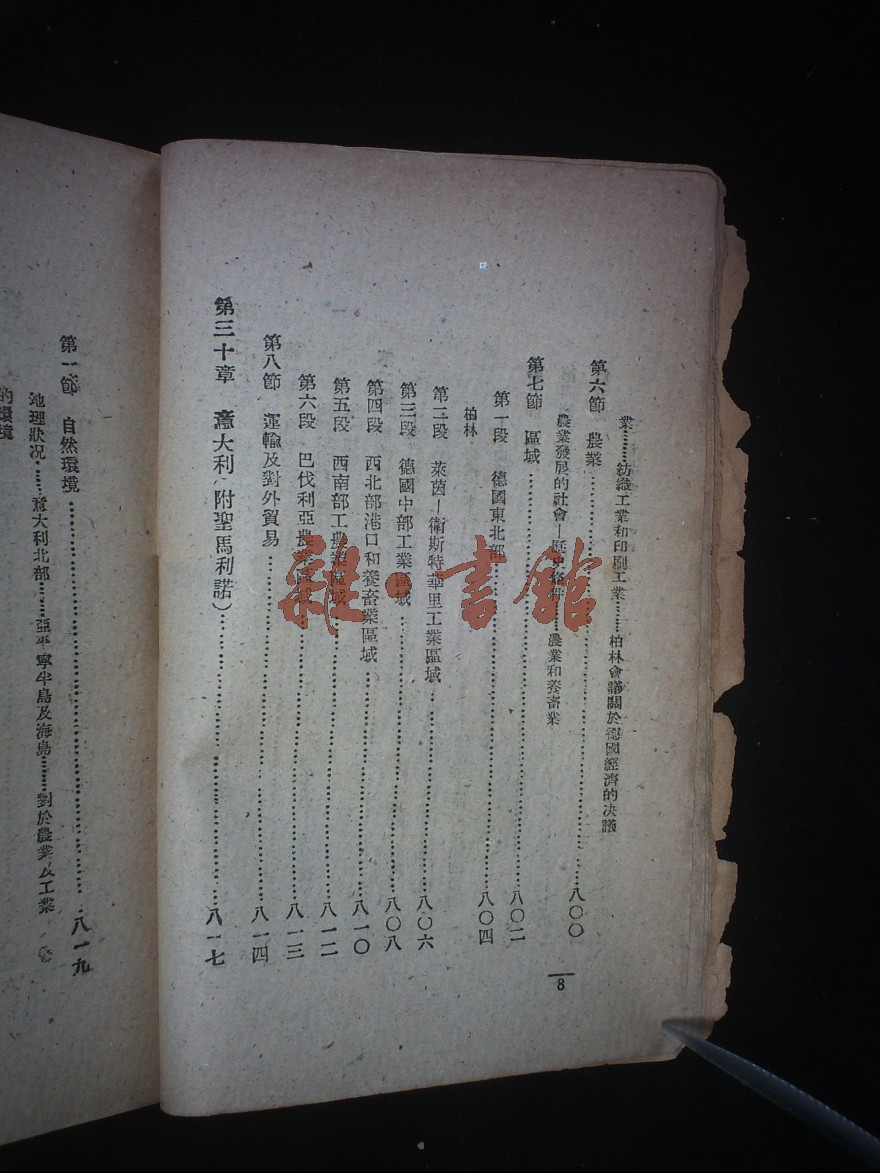 業………紡織工業和印刷工業………柏林會議關於德國經濟的决議
第六節 農業……八〇〇
農業發展的社會—歷史條件………農業和養畜業
第七節 區域……八〇二
第一段 德國東北部……八〇四
柏林
第二段 萊茵—衛斯特華里工業區域……八〇六
第三段 德國中部工業區域……八〇八
第四段 西北部港口和養畜業區域……八一〇
第五段 西南部工農業區域……八一二
第六段 巴伐利亞農業區域……八一三
第八節 運輸及對外貿易……八一四
第三十章 意大利(附聖馬利諾)……八一七
8
第一節 自然環境……八一九
地理狀況………意大利北部………亞平寧半島及海島………對於農業及工業
的環境
雜·書館